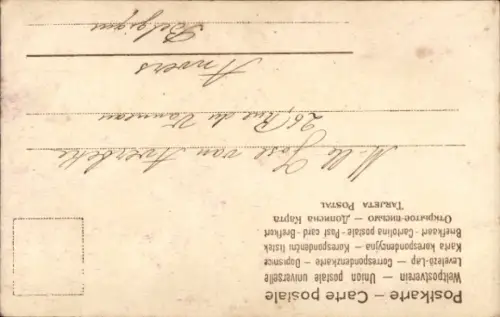 Postkarte – Carte postale
Weltpostverein – Union postale universelle
Levelező-Lap – Correspondenzkarte – Dopisnice
Karta korespondencyjna – Korespondenční lístek
Briefkaart – Cartolina postale – Post card – Brefkort
Открытое письмо – Дописна Карта
Tarjeta Postal
Mlle José van Averbeke
26, Rue du Vanneau
Anvers
Belgique